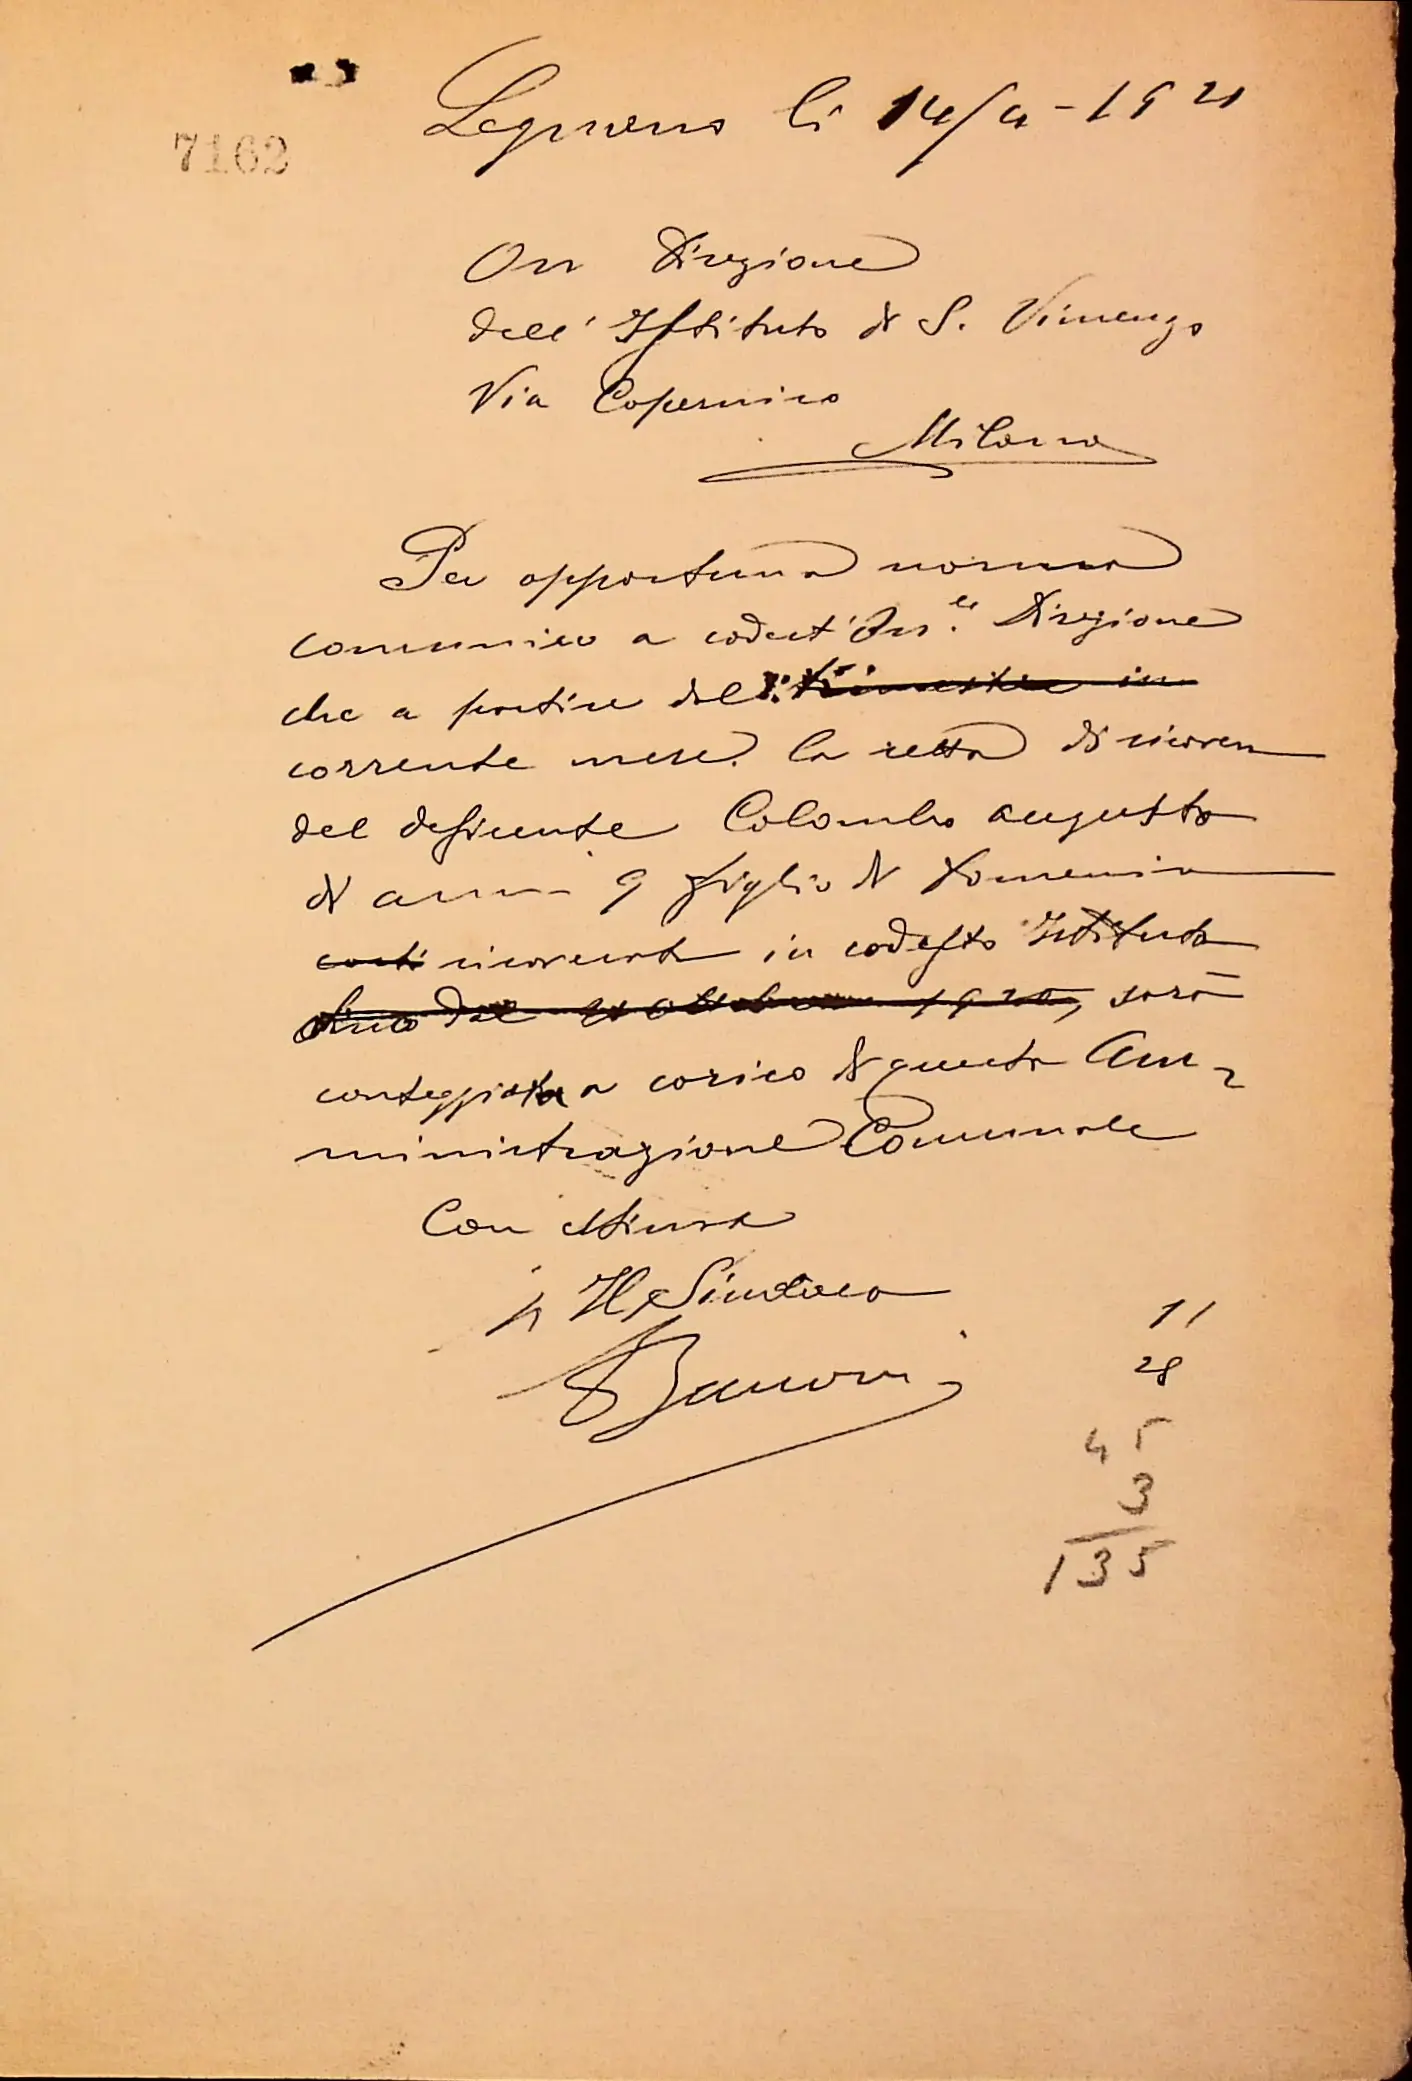 7162
Legnano li 14/4-1921
On Direzione
dell'Istituto di S. Vincenzo
Via Copernico
Milano
Per opportuna norma
comunico a codest'On.le Direzione
che a partire dal 1° trimestre in
corrente mese. la retta di ricovero
del deficiente Colombo Augusto
di anni 9 figlio di Domenico
costì ricoverato in codesto Istituto
fino dal 21 ottobre 1920, sarà
conteggiata a carico di questa Am-
ministrazione Comunale
Con stima
p Il Sindaco
11
28
45
3
135